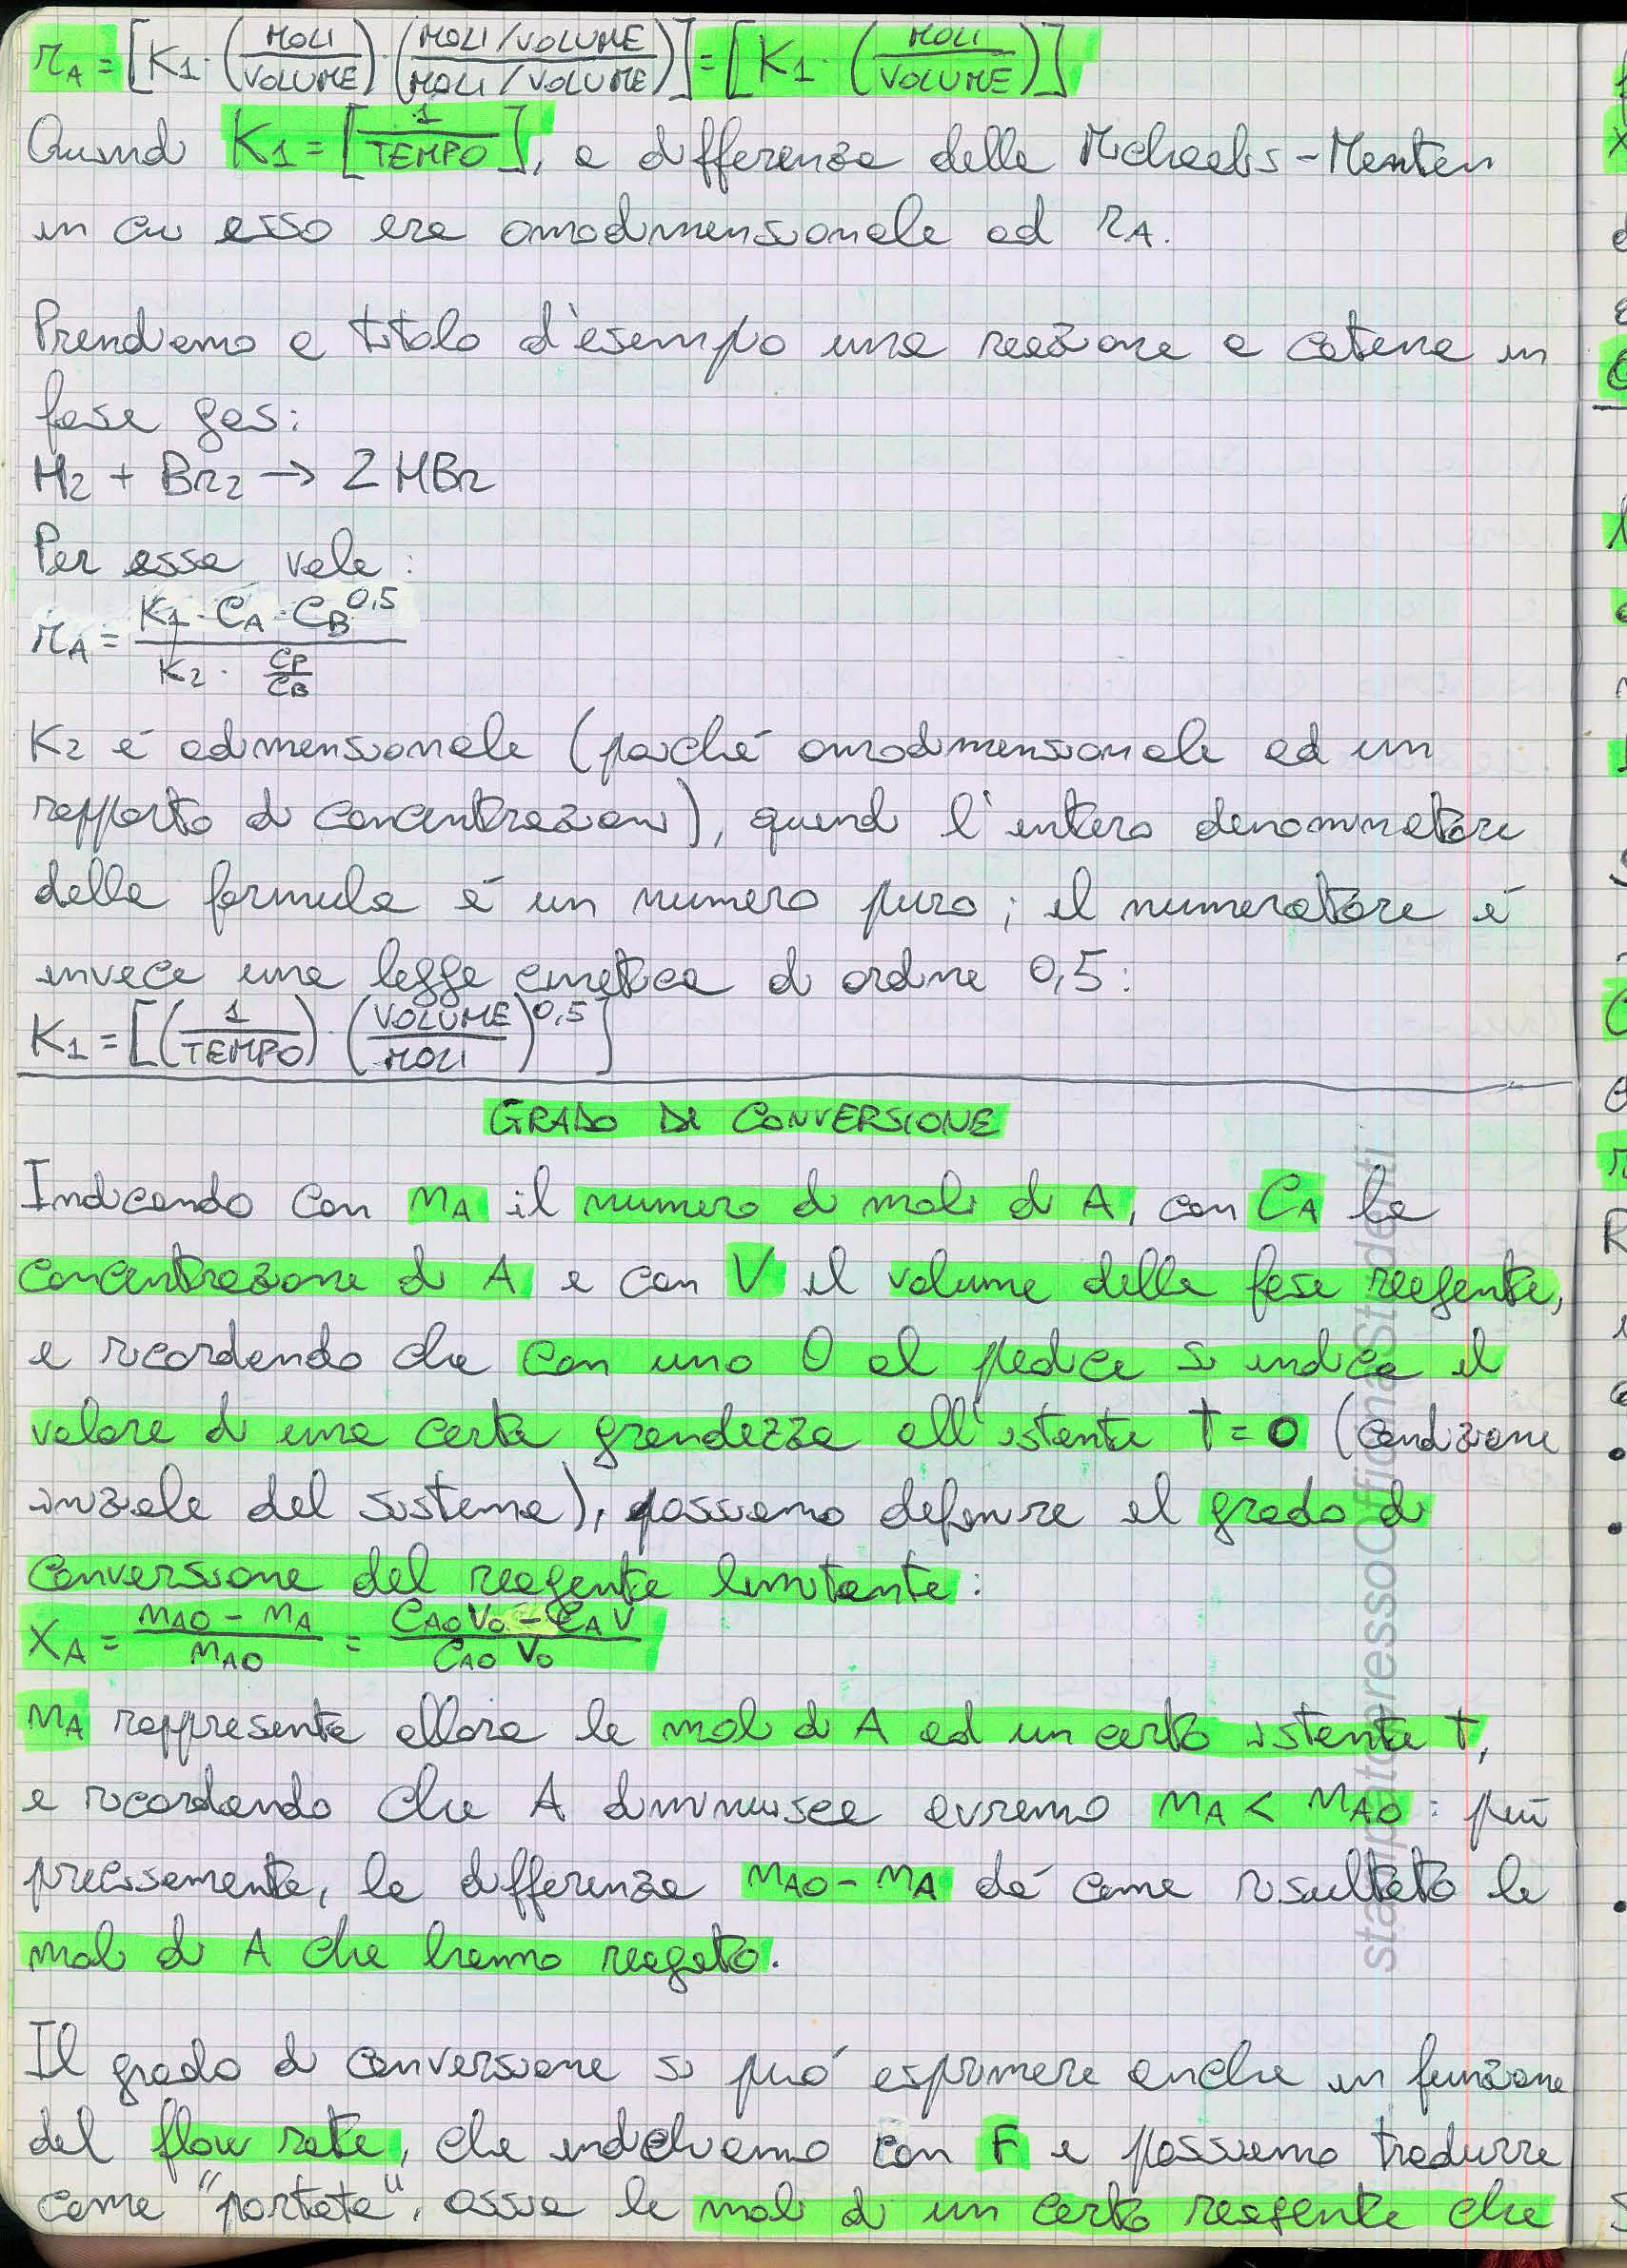 rA = [K1 · (MOLI/VOLUME) · (MOLI/VOLUME / MOLI/VOLUME)] = [K1 · (MOLI/VOLUME)]
Quindi K1 = [1/TEMPO], a differenza della Michaelis-Menten
in cui esso era omodimensionale ad rA.
Prendiamo a titolo d'esempio una reazione a catena in
fase gas:
H2 + Br2 → 2HBr
Per essa vale:
rA = K1 · CA · CB^0,5 / K2 · CP/CB
K2 é adimensionale (poiché omodimensionale ad un
rapporto di concentrazioni), quindi l'intero denominatore
della formula é un numero puro; il numeratore é
invece una legge cinetica di ordine 0,5:
K1 = [(1/TEMPO) · (VOLUME/MOLI)^0,5]
GRADO DI CONVERSIONE
Indicando con nA il numero di moli di A, con CA la
concentrazione di A e con V il volume della fase reagente,
e ricordando che con uno 0 al pedice si indica il
valore di una certa grandezza all'istante t=0 (condizione
iniziale del sistema), possiamo definire il grado di
conversione del reagente limitante:
XA = nA0 - nA / nA0 = CA0 V0 - CA V / CA0 V0
nA rappresenta allora le moli di A ad un certo istante t,
e ricordando che A diminuisce avremo nA < nA0: piú
precisamente, la differenza nA0 - nA dá come risultato le
moli di A che hanno reagito.
Il grado di conversione si puó esprimere anche in funzione
del flow rate, che indichiamo con F e possiamo tradurre
come "portata", ossia le moli di un certo reagente che